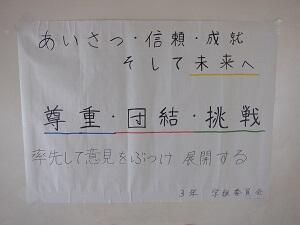 あいさつ・信頼・成就
そして未来へ
尊重・団結・挑戦
率先して意見をぶつけ 展開する
3年 学級委員会